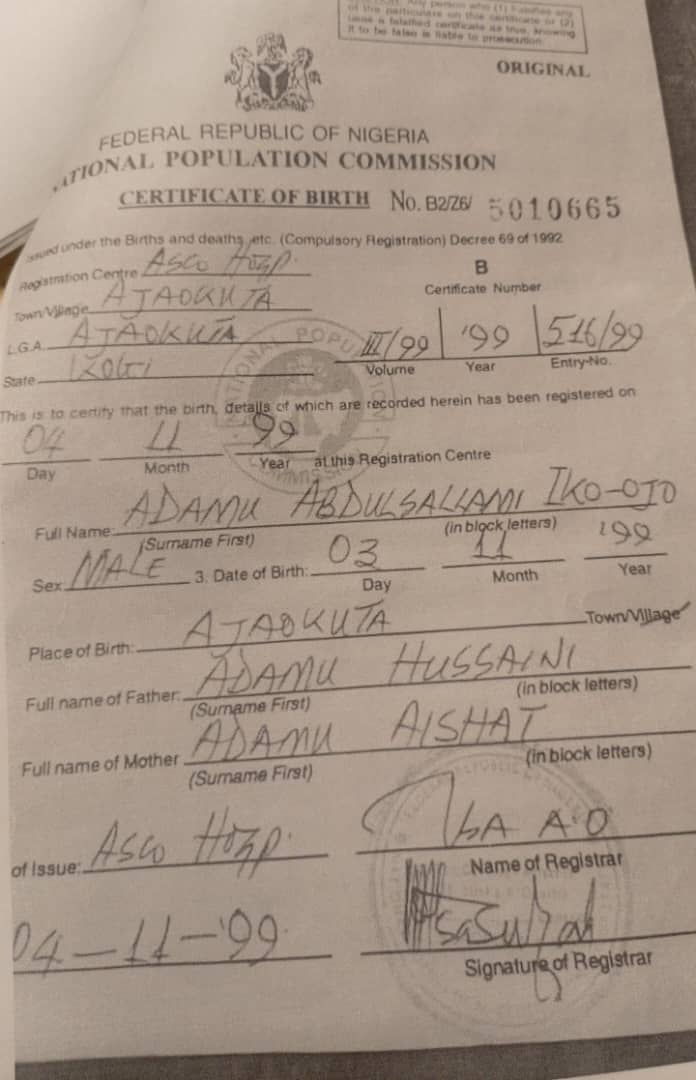 Any person who (1) falsifies any
of the particulars on this certificate or (2)
uses a falsified certificate as true, knowing
it to be false is liable to prosecution
ORIGINAL
FEDERAL REPUBLIC OF NIGERIA
NATIONAL POPULATION COMMISSION
CERTIFICATE OF BIRTH No. B2/Z6/ 5010665
Issued under the Births and deaths, etc. (Compulsory Registration) Decree 69 of 1992
Registration Centre ASCO HOSP. B
Certificate Number
Town/Village AJAOKUTA
L.G.A. AJAOKUTA III/99 '99 516/99
Volume Year Entry-No.
State KOGI
This is to certify that the birth, details of which are recorded herein has been registered on
04 11 99
Day Month Year at this Registration Centre
Full Name: ADAMU ABDULSALLAMI IKO-OJO
(Surname First) (in block letters)
Sex MALE 3. Date of Birth: 03 11 '99
Day Month Year
Place of Birth: AJAOKUTA Town/Village
Full name of Father: ADAMU HUSSAINI
(Surname First) (in block letters)
Full name of Mother ADAMU AISHAT
(Surname First) (in block letters)
of Issue: ASCO HOSP. A.O
Name of Registrar
04-11-'99
Signature of Registrar